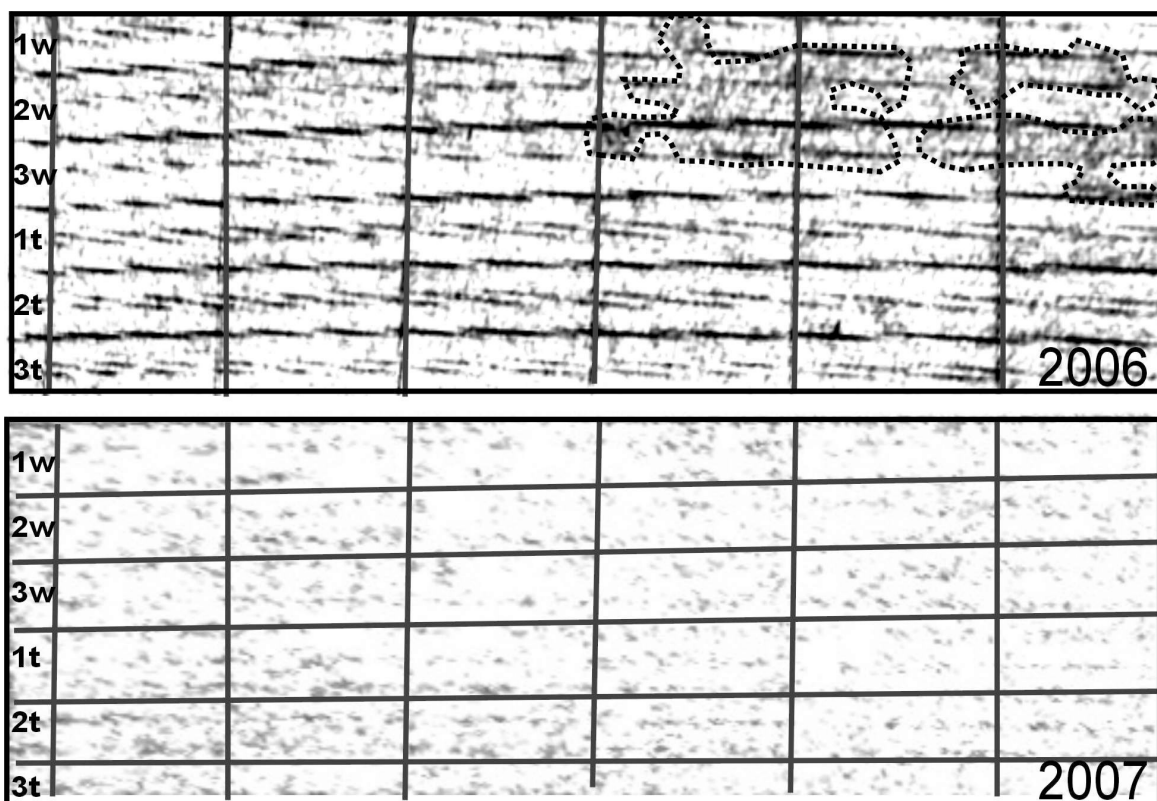 1w
2w
3w
1t
2t
3t
2006
1w
2w
3w
1t
2t
3t
2007